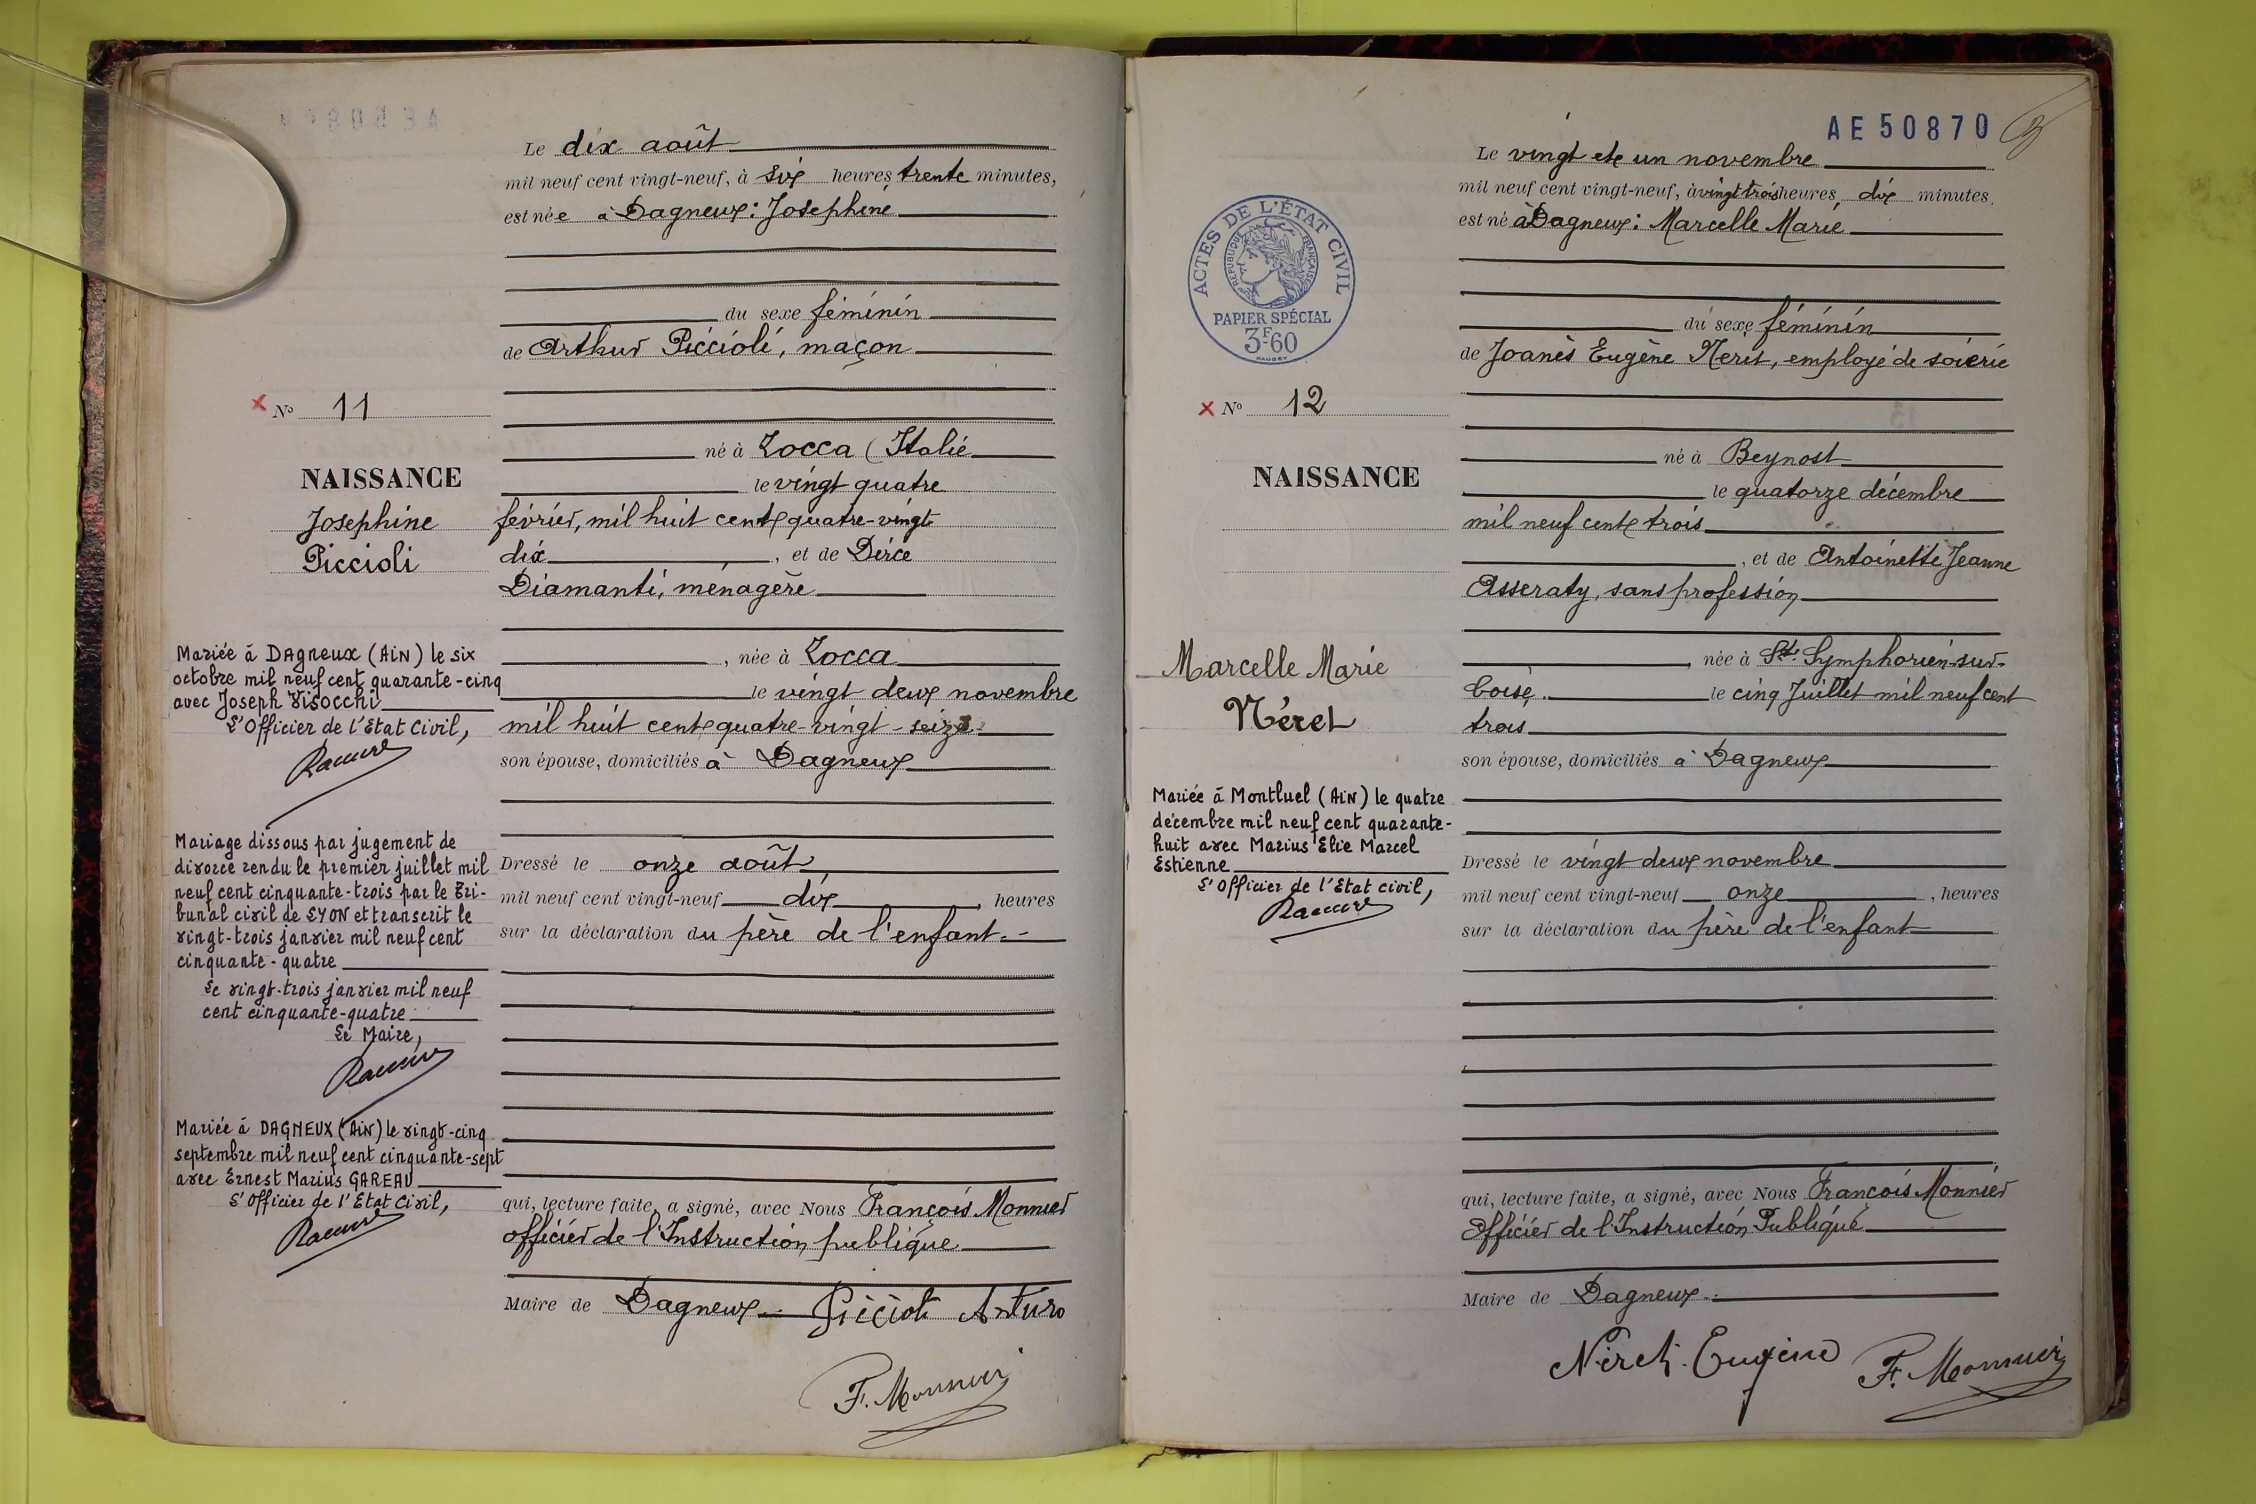 Le dix août
mil neuf cent vingt-neuf, à six heures trente minutes,
est née à Dagneux : Josephine
du sexe féminin
de Arthur Piccioli, maçon
X No 11
né à Zocca (Italie
NAISSANCE
le vingt quatre
Josephine
février, mil huit cent quatre-vingt
Piccioli
dix, et de Dirce
Diamanti, ménagère
, née à Zocca
le vingt deux novembre
mil huit cent quatre-vingt-seize
son épouse, domiciliés à Dagneux
Dressé le onze août
mil neuf cent vingt-neuf dix, heures
sur la déclaration du père de l'enfant.-
qui, lecture faite, a signé, avec Nous François Monnier
officier de l'Instruction publique
Maire de Dagneux Piccioli Arturo
F. Monnier
Mariée à DAGNEUX (AIN) le six
octobre mil neuf cent quarante-cinq
avec Joseph Visocchi
L'Officier de l'Etat Civil,
Mariage dissous par jugement de
divorce rendu le premier juillet mil
neuf cent cinquante-trois par le Tri-
bunal civil de LYON et transcrit le
vingt-trois janvier mil neuf cent
cinquante-quatre
Le vingt-trois janvier mil neuf
cent cinquante-quatre
Le Maire,
Mariée à DAGNEUX (AIN) le vingt-cinq
septembre mil neuf cent cinquante-sept
avec Ernest Marius GAREAU
L'Officier de l'Etat Civil,
AE 50870
Le vingt et un novembre
mil neuf cent vingt-neuf, à vingt trois heures dix minutes
est né à Dagneux : Marcelle Marie
ACTES DE L'ÉTAT CIVIL
RÉPUBLIQUE FRANÇAISE
PAPIER SPÉCIAL
3F.60
du sexe féminin
de Joanès Eugène Neret, employé de soierie
X No 12
né à Beynost
NAISSANCE
le quatorze décembre
mil neuf cent trois
, et de Antoinette Jeanne
Asseraty, sans profession
, née à St Symphorien-sur-
Coise le cinq Juillet mil neuf cent
trois
son épouse, domiciliés à Dagneux
Marcelle Marie
Néret
Dressé le vingt deux novembre
mil neuf cent vingt-neuf onze, heures
sur la déclaration du père de l'enfant
qui, lecture faite, a signé, avec Nous François Monnier
Officier de l'Instruction Publique
Maire de Dagneux.-
Néret Eugène F. Monnier
Mariée à Montluel (AIN) le quatre
décembre mil neuf cent quarante-
huit avec Marius Elie Marcel
Estienne
L'Officier de l'Etat civil,